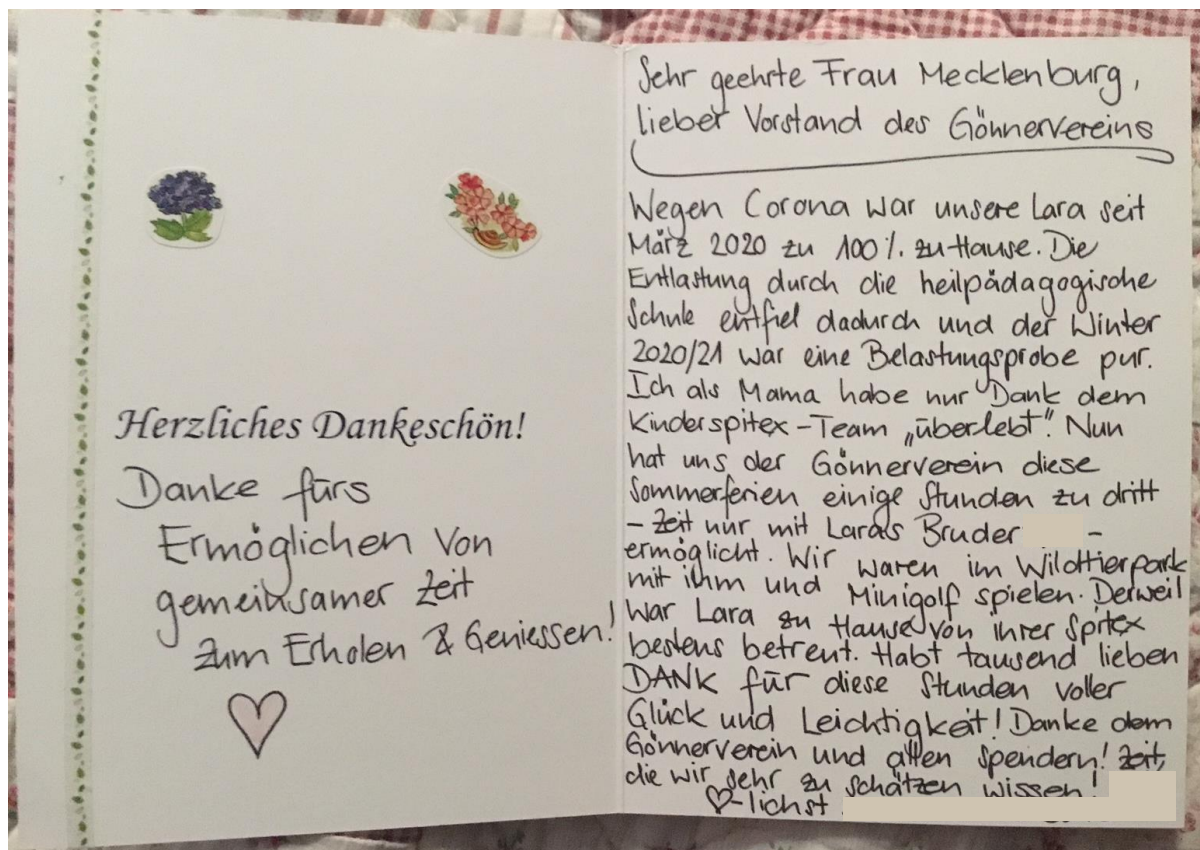 Herzliches Dankeschön!
Danke fürs
Ermöglichen von
gemeinsamer Zeit
zum Erholen & Geniessen!
Sehr geehrte Frau Mecklenburg,
lieber Vorstand des Gönnervereins
Wegen Corona war unsere Lara seit
März 2020 zu 100% zu Hause. Die
Entlastung durch die heilpädagogische
Schule entfiel dadurch und der Winter
2020/21 war eine Belastungsprobe pur.
Ich als Mama habe nur Dank dem
Kinderspitex-Team „überlebt". Nun
hat uns der Gönnerverein diese
Sommerferien einige Stunden zu dritt
- Zeit nur mit Lara's Bruder -
ermöglicht. Wir waren im Wildtierpark
mit ihm und Minigolf spielen. Derweil
war Lara zu Hause von ihrer Spitex
bestens betreut. Habt tausend lieben
DANK für diese Stunden voller
Glück und Leichtigkeit! Danke dem
Gönnerverein und allen Spendern! Zeit,
die wir sehr zu schätzen wissen!
♡-lichst